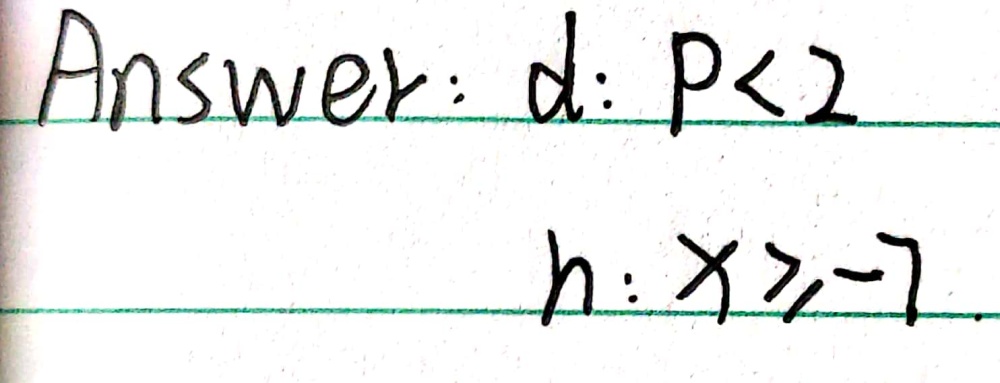 Answer: d: P<2
h: x⩾-7.